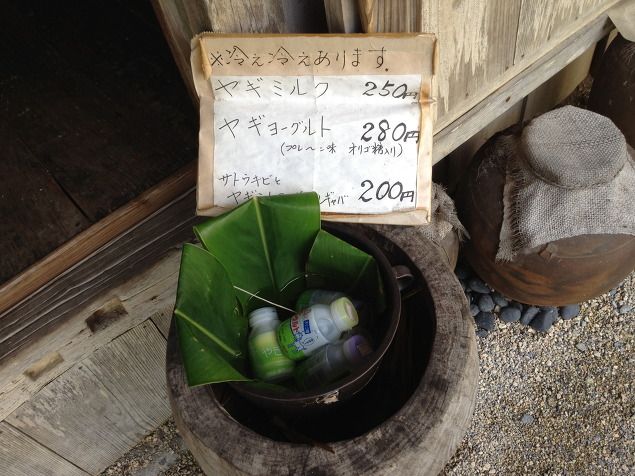 ※冷え冷えあります。
ヤギミルク 250円
ヤギヨーグルト 280円
(プレーン味 オリゴ糖入り)
サトウキビと
ヤギ ギャバ 200円